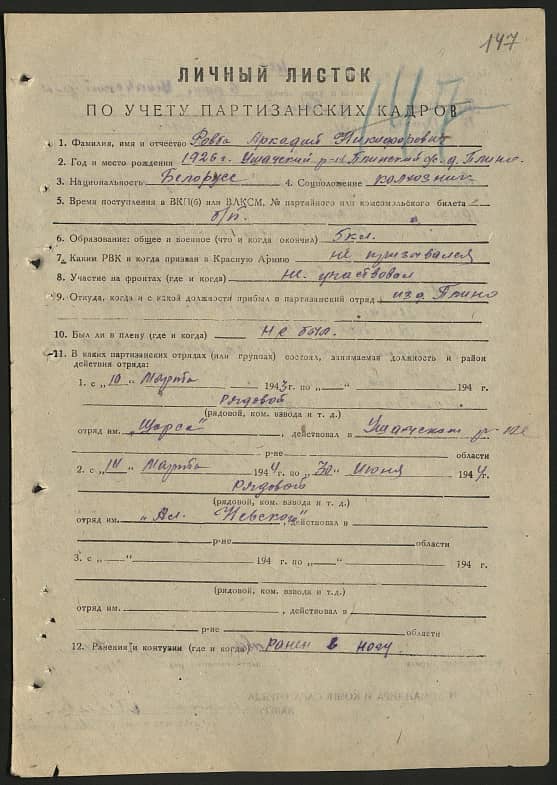 147
147
ЛИЧНЫЙ ЛИСТОК
ПО УЧЕТУ ПАРТИЗАНСКИХ КАДРОВ
1. Фамилия, имя и отчество Ровба Аркадий Никифорович
2. Год и место рождения 1926 г. Ушачский р-н Плинский с/с д. Плино.
3. Национальность Белорусс 4. Соцположение колхозник
5. Время поступления в ВКП(б) или ВЛКСМ, № партийного или комсомольского билета
б/п.
6. Образование: общее и военное (что и когда окончил) 5 кл.
7. Каким РВК и когда призван в Красную Армию не призывался
8. Участие на фронтах (где и когда) не участвовал
9. Откуда, когда и с какой должности прибыл в партизанский отряд из д. Плино
10. Был ли в плену (где и когда) не был.
11. В каких партизанских отрядах (или группах) состоял, занимаемая должность и район
действия отряда:
1. с „10“ Марта 1943 г. по „ “ 194 г.
Рядовой
(рядовой, ком. взвода и т. д.)
отряд им. „Щорса“, действовал в Ушачском р-не
р-не области
2. с „10“ Марта 1944 г. по „30“ Июня 1944 г.
Рядовой
(рядовой, ком. взвода и т. д.)
отряд им. „Ал. Невской“, действовал в
р-не области
3. с „ “ 194 г. по „ “ 194 г.
(рядовой, ком. взвода и т.д.)
отряд им. , действовал в
р-не области
12. Ранения и контузии (где и когда) ранен в ногу